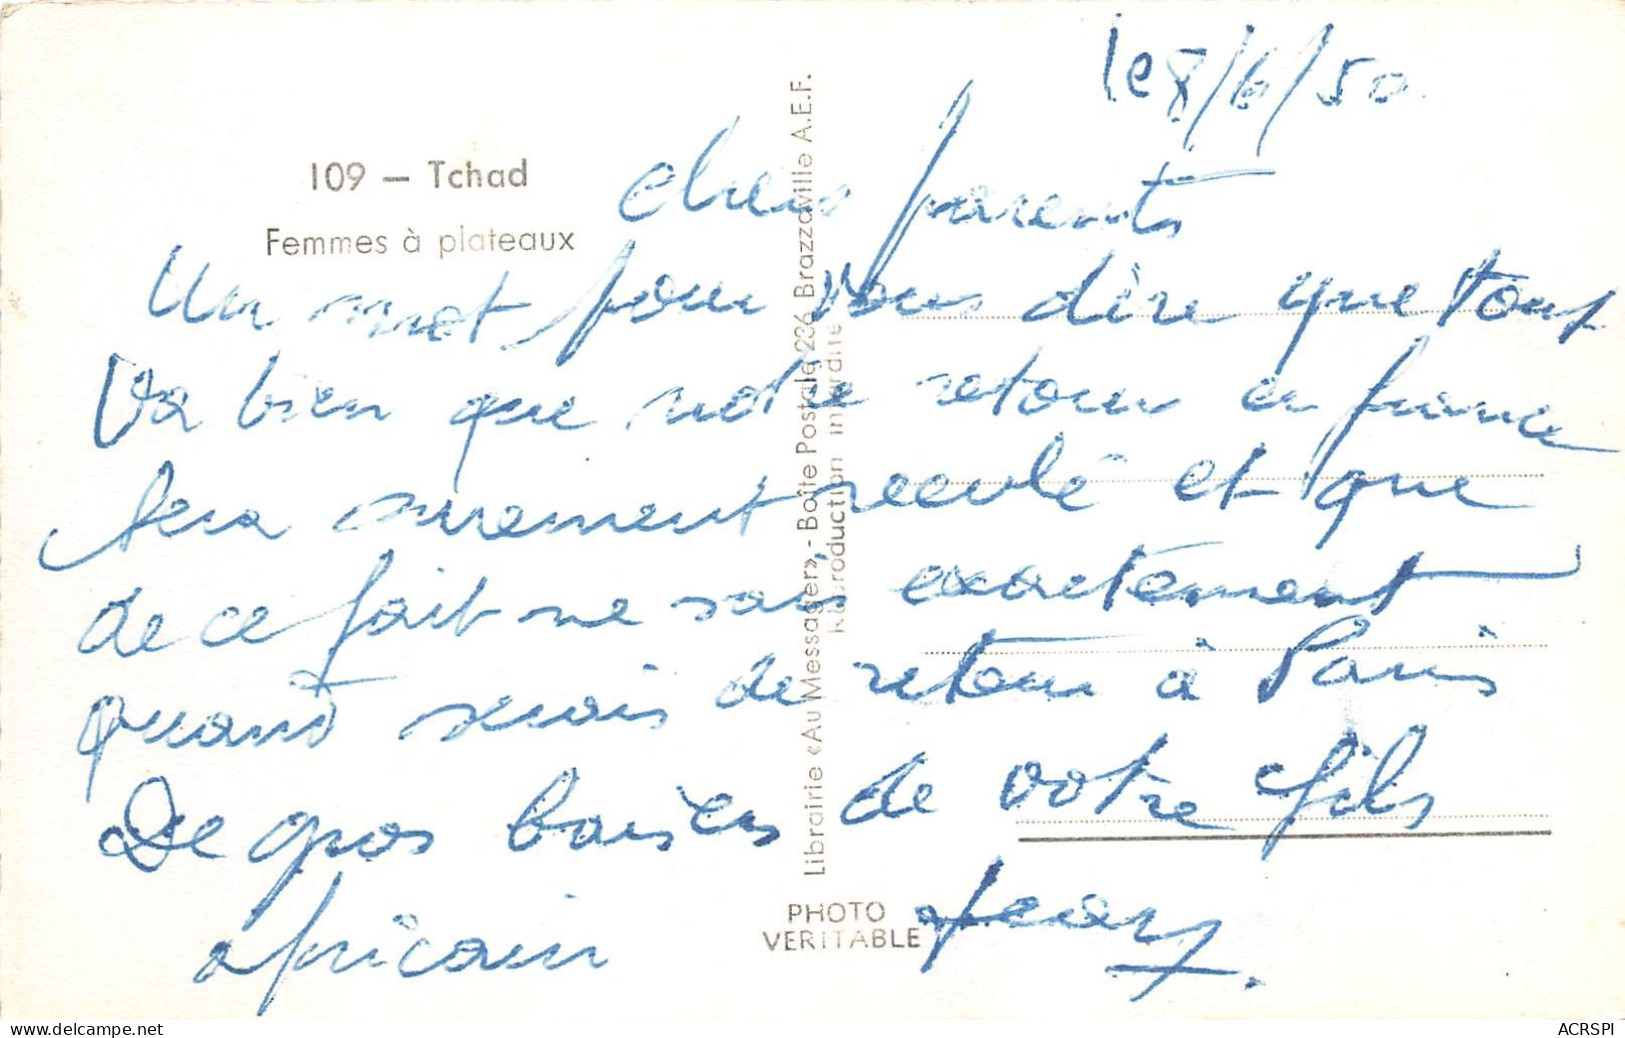 le 8/6/50
109 — Tchad
Femmes à plateaux
chers parents
Un mot pour vous dire que tout
va bien que notre retour en france
sera surement reculé et que
de ce fait ne sais exactement
quand serais de retour à Paris
De gros baisers de votre fils
africain
Librairie «Au Messager», - Boîte Postale 236 Brazzaville A.E.F.
Reproduction interdite
PHOTO
VERITABLE
www.delcampe.net
ACRSPI